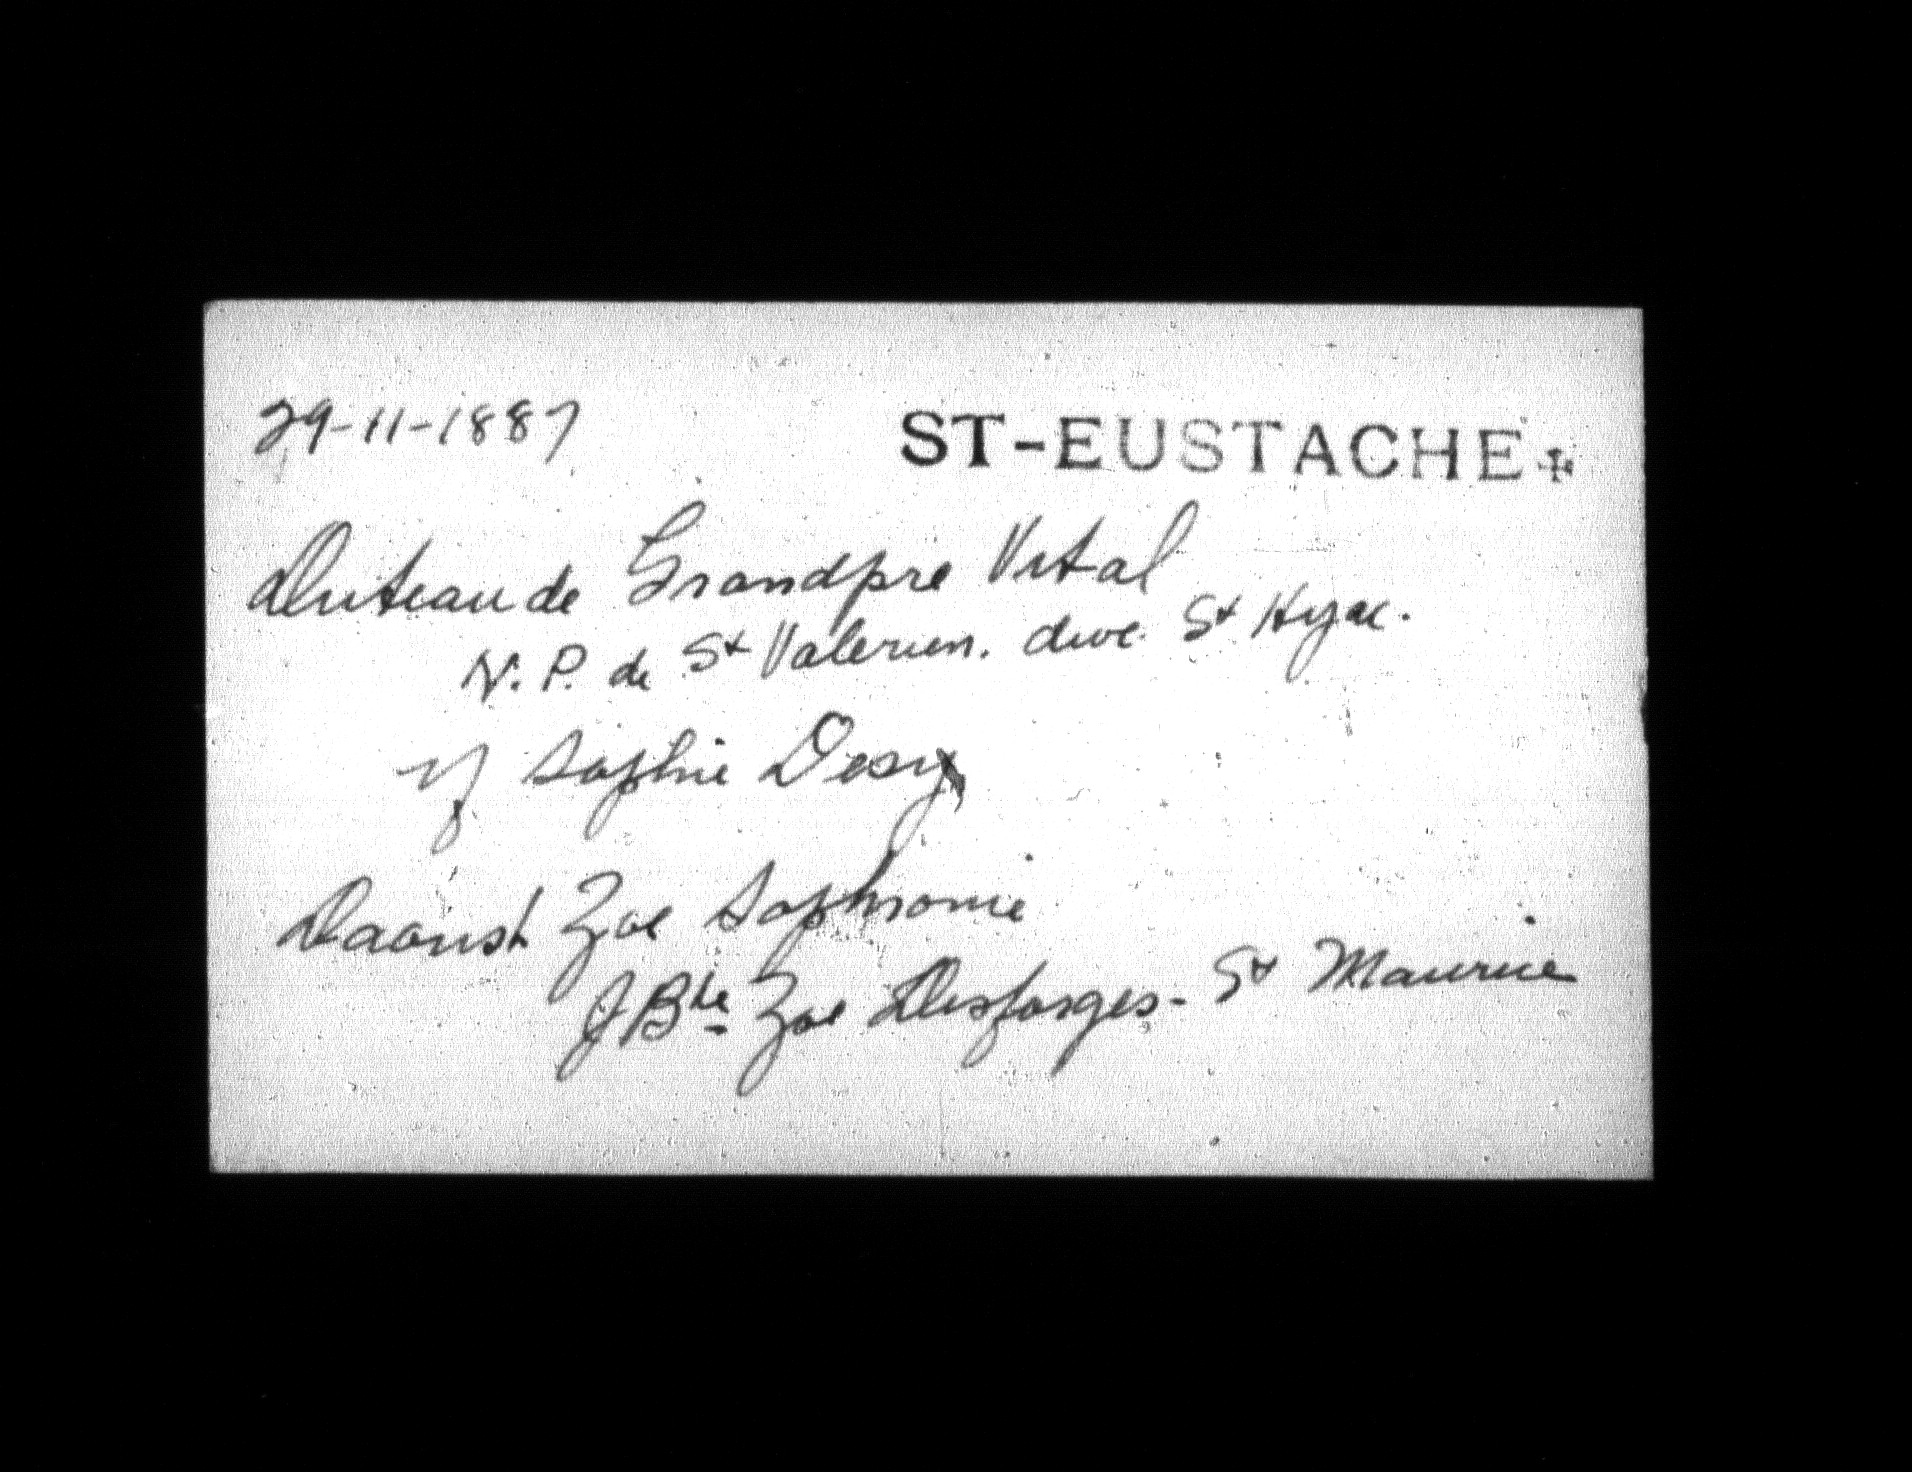 29-11-1887 ST-EUSTACHE
Duteau de Grandpre Vital
N. P. de St Valerien. dioc. St Hyac.
vf Sophie Desy
Daoust Zoe Sophronie
J Bte Zoe Desforges - St Maurice